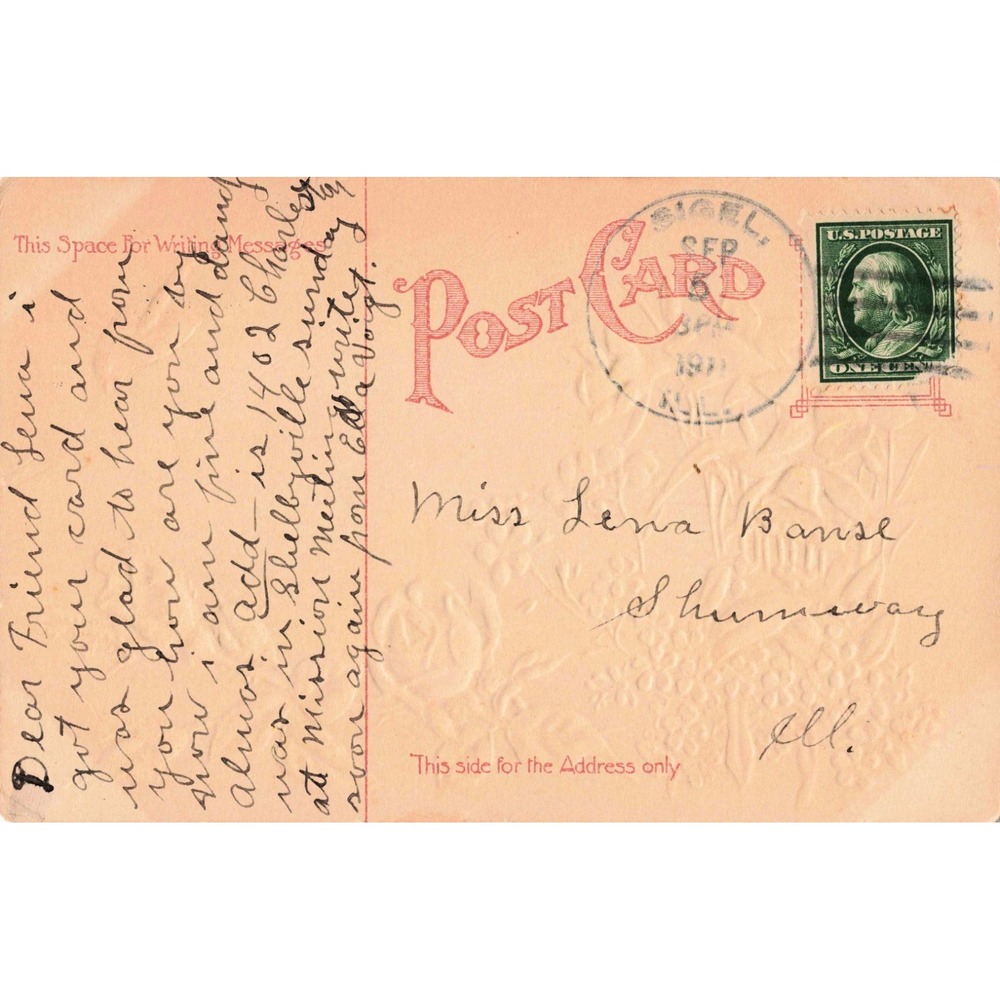 This Space For Writing Messages
POST CARD
SIGEL,
SEP
6
3PM
1911
ILL.
U.S. POSTAGE
ONE CENT
Dear Friend Lena i
got your card and
was glad to hear from
you how are you by
now i am fine and dandy
Almas add - is 1402 Charles str
was in Shelbyville sunday
att Mission Meeting write
soon again from Eda Voigt.
Miss Lena Banse
Shumway
Ill.
This side for the Address only